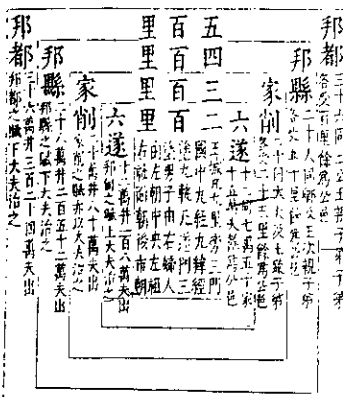 邦都
三十六同二公王母子弟
各受百里餘為公邑
邦縣
二十八同卿受王次親子弟
各受五十里餘為公邑
家削
二十同大夫及王疏子弟
各受二十五里餘為公邑
六遂
十二同七萬五千家
十五萬夫餘為公邑
五百里
四百里
三百里
二百里
王城九里旁三門
國中九經九緯經
涂九軌天涂門三
涂男子由右婦人
由左朝中央左祖
右社面朝後市朝
六遂
十二萬井一百八萬夫出
邦甸之賦上大夫治之
家削
二十萬井一百八十萬夫出
家削之賦亦以大夫治之
邦縣
二十八萬井二百五十二萬夫出
邦縣之賦下大夫治之
邦都
三十六萬井三百二十四萬夫出
邦都之賦下大夫治之